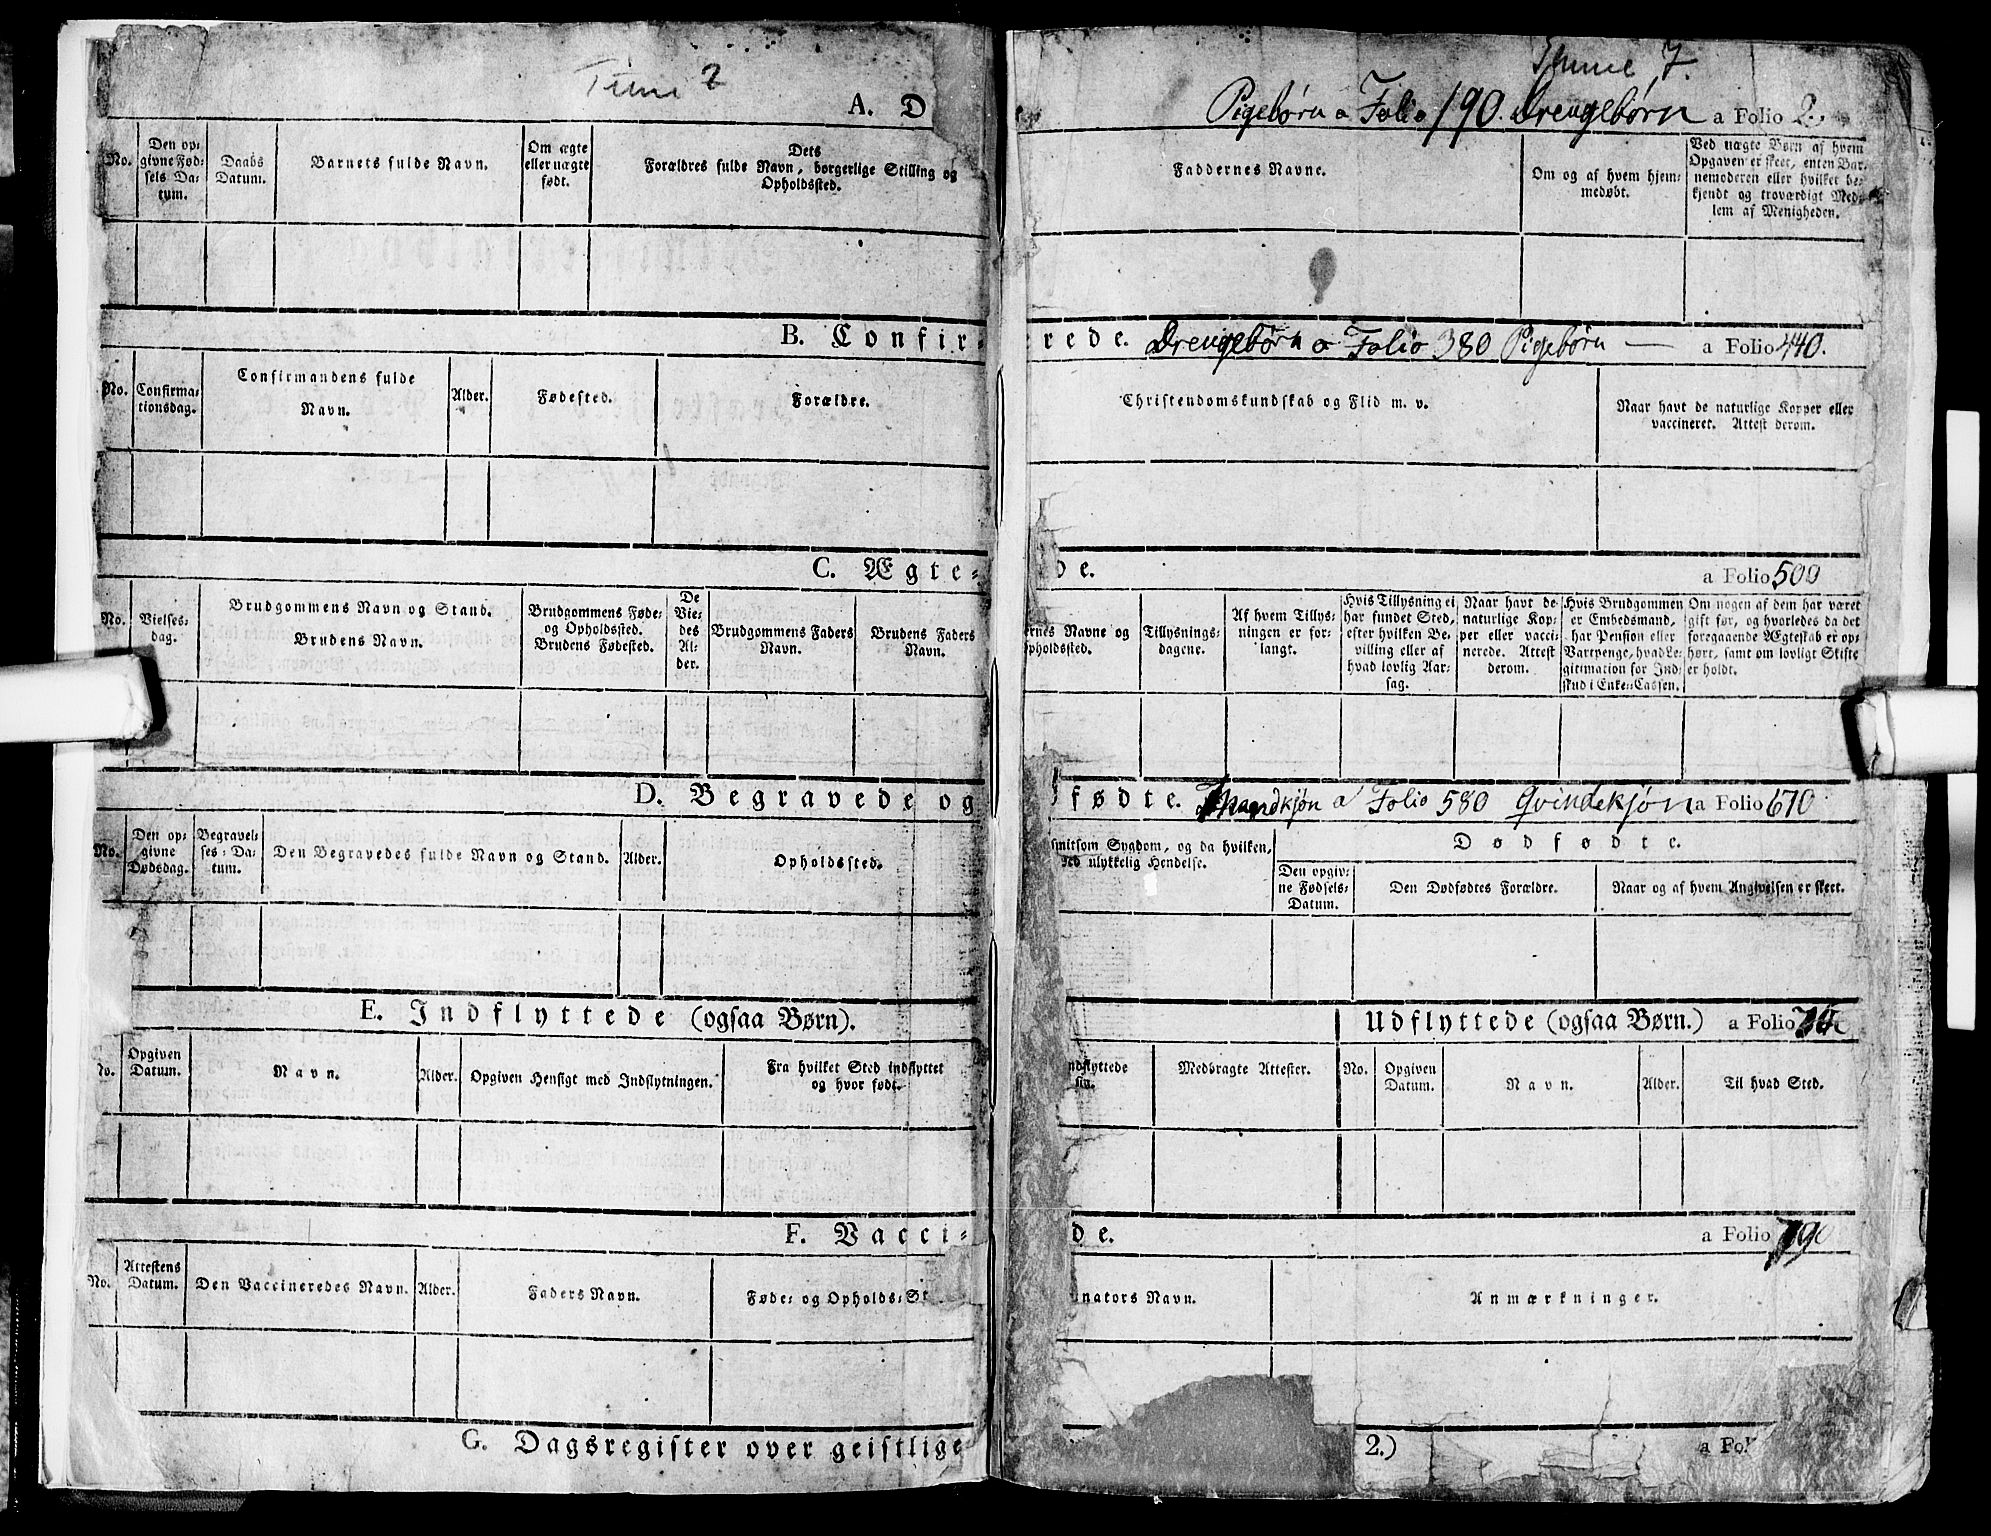 Tune 7
Tune 7.
A. D
Pigebørn a Folio 190. Drengebørn a Folio 2.
No.
Den op-
givne Fød-
sels Da-
tum.
Daabs
Datum.
Barnets fulde Navn.
Om ægte
eller uægte
født.
Dets
Forældres fulde Navn, borgerlige Stilling og
Opholdssted.
Faddernes Navne.
Om og af hvem hjem-
medøbt.
Ved uægte Børn af hvem
Opgaven er skeet, enten Bar-
nemoderen eller hvilket be-
kjendt og troværdigt Med-
lem af Menigheden.
B. Confir-
erede. Drengebørn a Folio 380 Pigebørn — a Folio 440.
No.
Confirma-
tionsdag.
Confirmandens fulde
Navn.
Alder.
Fødested.
Forældre.
Christendomskundskab og Flid m. v.
Naar havt de naturlige Kopper eller
vaccineret. Attest derom.
C. Ægte-
de.
a Folio 500
No.
Vielses-
dag.
Brudgommens Navn og Stand.
Brudens Navn.
Brudgommens Føde-
og Opholdssted.
Brudens Fødested.
De
Vie-
des
Al-
der.
Brudgommens Faders
Navn.
Brudens Faders
Navn.
ernes Navne og
pholdssted.
Tillysnings-
dagene.
Af hvem Tillys-
ningen er for-
langt.
Hvis Tillysning ei
har fundet Sted,
efter hvilken Be-
villing eller af
hvad lovlig Aar-
sag.
Naar havt de
naturlige Kop-
per eller vacci-
nerede. Attest
derom.
Hvis Brudgommen
er Embedsmand,
har Pension eller
Vartpenge, hvad Le-
gitimation for Ind-
skud i Enke-Cassen.
Om nogen af dem har været
gift før, og hvorledes da det
foregaaende Ægteskab er op-
hørt, samt om lovligt Skifte
er holdt.
D. Begravede og
fødte. Mandkjøn a Folio 580 Qvindekjøn a Folio 670
No.
Den op-
givne
Dødsdag.
Begravel-
ses-Da-
tum.
Den Begravedes fulde Navn og Stand.
Alder.
Opholdssted.
smitsom Sygdom, og da hvilken,
ved ulykkelig Hendelse.
Dødfødte.
Den opgiv-
ne Fødsels-
Datum.
Den Dødfødtes Forældre.
Naar og af hvem Angivelsen er skeet.
E. Indflyttede (ogsaa Børn).
Udflyttede (ogsaa Børn.) a Folio
No.
Opgiven
Datum.
Navn.
Alder.
Opgiven Hensigt med Indflytningen.
Fra hvilket Sted indflyttet
og hvor født.
ndflyttede
Medbragte Attester.
No.
Opgiven
Datum.
Navn.
Alder.
Til hvad Sted.
F. Vacci-
de.
a Folio 790
No.
Attestens
Datum.
Den Vaccineredes Navn.
Alder.
Faders Navn.
Føde- og Opholds-St
nators Navn.
Anmærkninger.
G. Dagsregister over geistlige
2.)
a Fol